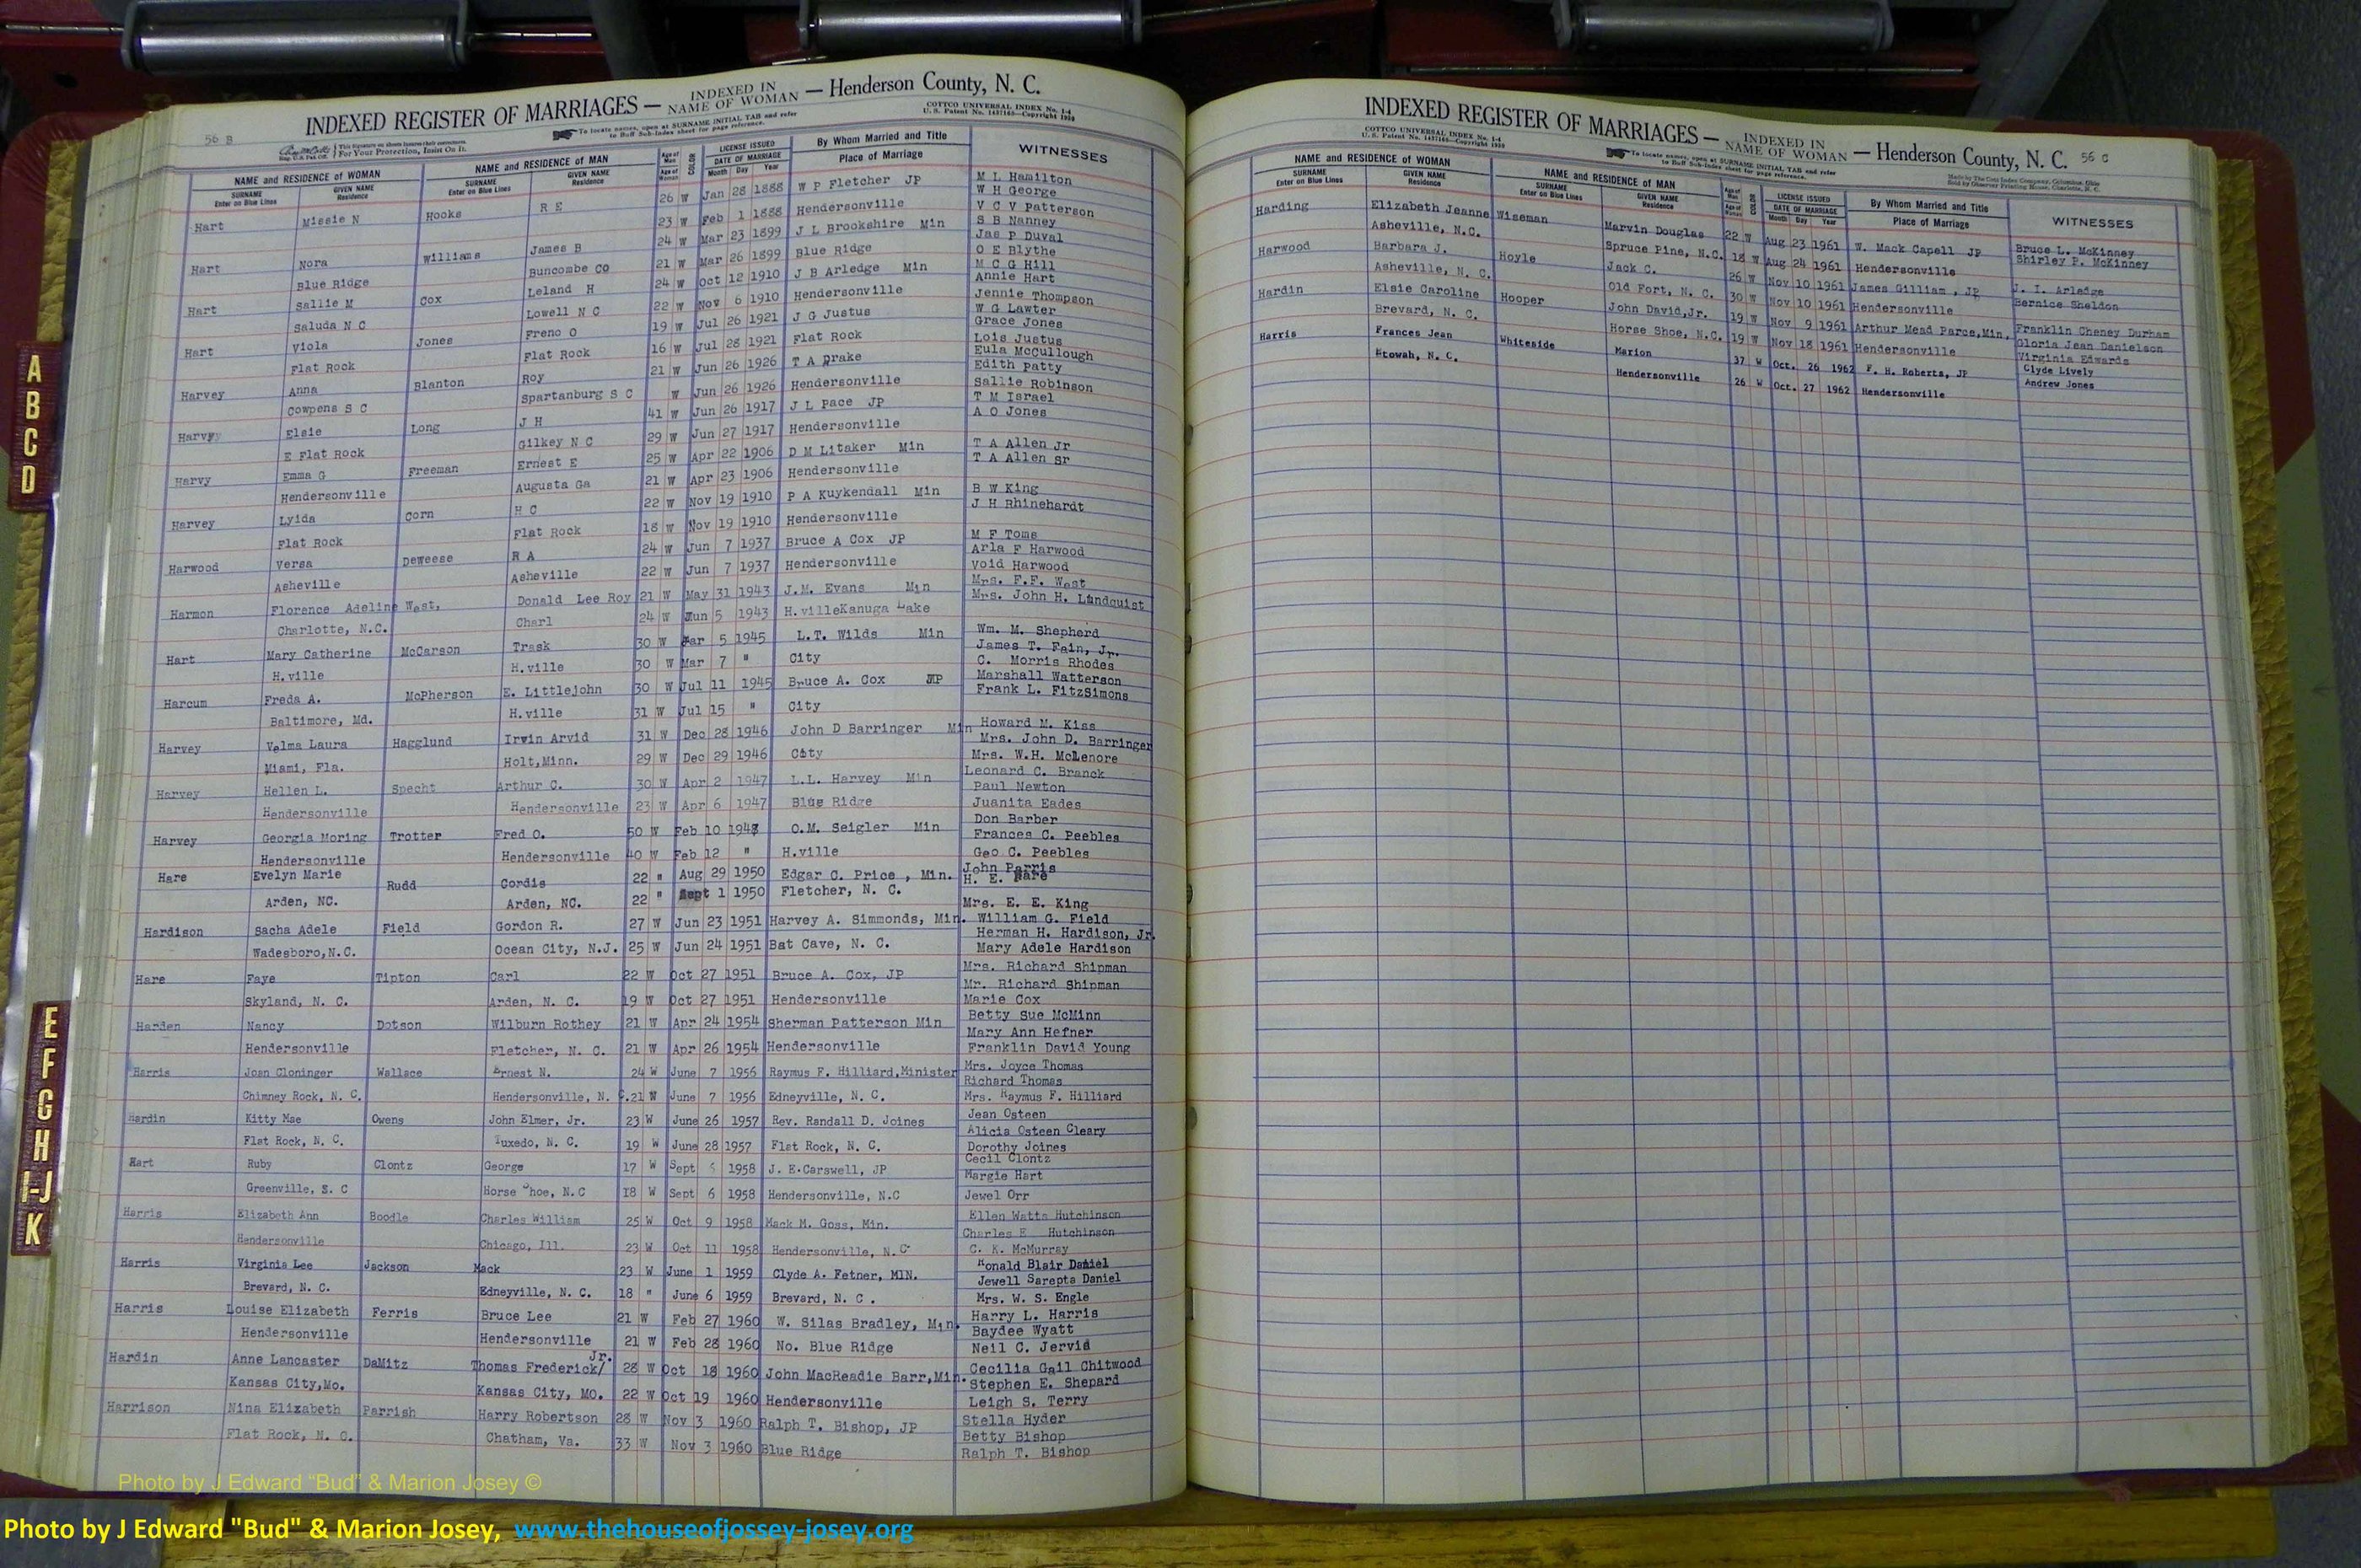 56 B
INDEXED REGISTER OF MARRIAGES — INDEXED IN NAME OF WOMAN — Henderson County, N. C.
To locate names, open at SURNAME INITIAL TAB and refer to Buff Sub-Index sheet for page reference.
COTTCO UNIVERSAL INDEX No. 1-4
U. S. Patent No. 1437165—Copyright 1950
This Signature on sheets insures their correctness.
For Your Protection, Insist On It.
NAME and RESIDENCE OF WOMAN NAME and RESIDENCE OF MAN Age of Man Age of Woman COLOR LICENSE ISSUED DATE OF MARRIAGE By Whom Married and Title Place of Marriage WITNESSES
SURNAME Enter on Blue Lines GIVEN NAME Residence SURNAME Enter on Blue Lines GIVEN NAME Residence Month Day Year
Hart Missie N Hooks R E 26 W Jan 28 1888 W P Fletcher JP M L Hamilton
W H George
23 W Feb 1 1888 Hendersonville V C V Patterson
Hart Nora Williams James B 24 W Mar 23 1899 J L Brookshire Min S B Nanney
Jas P Duval
Blue Ridge Buncombe CO 21 W Mar 26 1899 Blue Ridge O E Blythe
Hart Sallie M Cox Leland H 24 W Oct 12 1910 J B Arledge Min M C G Hill
Annie Hart
Saluda N C Lowell N C 22 W Nov 6 1910 Hendersonville Jennie Thompson
Hart Viola Jones Freno O 19 W Jul 26 1921 J G Justus W G Lawter
Grace Jones
Flat Rock Flat Rock 16 W Jul 28 1921 Flat Rock Lois Justus
Harvey Anna Blanton Roy 21 W Jun 26 1926 T A Drake Eula McCullough
Edith Patty
Cowpens S C Spartanburg S C W Jun 26 1926 Hendersonville Sallie Robinson
Harvey Elsie Long J H 41 W Jun 26 1917 J L Pace JP T M Israel
A O Jones
E Flat Rock Gilkey N C 29 W Jun 27 1917 Hendersonville
Harvy Emma G Freeman Ernest E 25 W Apr 22 1906 D M Litaker Min T A Allen Jr
T A Allen Sr
Hendersonville Augusta Ga 21 W Apr 23 1906 Hendersonville
Harvey Lyida Corn H C 22 W Nov 19 1910 P A Kuykendall Min B W King
J H Rhinehardt
Flat Rock Flat Rock 18 W Nov 19 1910 Hendersonville
Harwood Versa DeWeese R A 24 W Jun 7 1937 Bruce A Cox JP M F Toms
Arla F Harwood
Asheville Asheville 22 W Jun 7 1937 Hendersonville Void Harwood
Harmon Florence Adeline West, Donald Lee Roy 21 W May 31 1943 J.M. Evans Min Mrs. F.F. West
Mrs. John H. Lundquist
Charlotte, N.C. Charl 24 W Jun 5 1943 H.villeKanuga Lake
Hart Mary Catherine McCarson Trask 30 W Mar 5 1945 L.T. Wilds Min Wm. M. Shepherd
James T. Fain, Jr.
H.ville H.ville 30 W Mar 7 " City C. Morris Rhodes
Harcum Freda A. McPherson E. Littlejohn 30 W Jul 11 1945 Bruce A. Cox JP Marshall Watterson
Frank L. FitzSimons
Baltimore, Md. H.ville 31 W Jul 15 " City
Harvey Velma Laura Hagglund Irwin Arvid 31 W Dec 28 1946 John D Barringer Min Howard M. Kiss
Mrs. John D. Barringer
Miami, Fla. Holt,Minn. 29 W Dec 29 1946 City Mrs. W.H. McLenore
Harvey Hellen L. Specht Arthur C. 30 W Apr 2 1947 L.L. Harvey Min Leonard C. Branck
Paul Newton
Hendersonville Hendersonville 23 W Apr 6 1947 Blue Ridge Juanita Eades
Harvey Georgia Moring Trotter Fred O. 50 W Feb 10 1948 O.M. Seigler Min Don Barber
Frances C. Peebles
Hendersonville Hendersonville 40 W Feb 12 " H.ville Geo C. Peebles
Hare Evelyn Marie Rudd Cordis 22 " Aug 29 1950 Edgar C. Price , Min. John Parris
H. E. Hare
Arden, NC. Arden, NC. 22 " Sept 1 1950 Fletcher, N. C. Mrs. E. E. King
Hardison Sacha Adele Field Gordon R. 27 W Jun 23 1951 Harvey A. Simmonds, Min. William G. Field
Herman H. Hardison, Jr.
Wadesboro,N.C. Ocean City, N.J. 25 W Jun 24 1951 Bat Cave, N. C. Mary Adele Hardison
Hare Faye Tipton Carl 22 W Oct 27 1951 Bruce A. Cox, JP Mrs. Richard Shipman
Mr. Richard Shipman
Skyland, N. C. Arden, N. C. 19 W Oct 27 1951 Hendersonville Marie Cox
Harden Nancy Dotson Wilburn Rothey 21 W Apr 24 1954 Sherman Patterson Min Betty Sue McMinn
Mary Ann Hefner
Hendersonville Fletcher, N. C. 21 W Apr 26 1954 Hendersonville Franklin David Young
Harris Joan Cloninger Wallace Ernest N. 24 W June 7 1956 Raymus F. Hilliard,Minister Mrs. Joyce Thomas
Richard Thomas
Chimney Rock, N. C. Hendersonville, N. C. 21 W June 7 1956 Edneyville, N. C. Mrs. Raymus F. Hilliard
Hardin Kitty Mae Owens John Elmer, Jr. 23 W June 26 1957 Rev. Randall D. Joines Jean Osteen
Alicia Osteen Cleary
Flat Rock, N. C. Tuxedo, N. C. 19 W June 28 1957 Flat Rock, N. C. Dorothy Joines
Hart Ruby Clontz George 17 W Sept 6 1958 J. E.Carswell, JP Cecil Clontz
Margie Hart
Greenville, S. C Horse Shoe, N.C 18 W Sept 6 1958 Hendersonville, N.C Jewel Orr
Harris Elizabeth Ann Boodle Charles William 25 W Oct 9 1958 Mack M. Goss, Min. Ellen Watts Hutchinson
Charles E Hutchinson
Hendersonville Chicago, Ill. 23 W Oct 11 1958 Hendersonville, N.C. C. K. McMurray
Harris Virginia Lee Jackson Mack 23 W June 1 1959 Clyde A. Fetner, MIN. Ronald Blair Daniel
Jewell Sarepta Daniel
Brevard, N. C. Edneyville, N. C. 18 " June 6 1959 Brevard, N. C . Mrs. W. S. Engle
Harris Louise Elizabeth Ferris Bruce Lee 21 W Feb 27 1960 W. Silas Bradley, Min. Harry L. Harris
Baydee Wyatt
Hendersonville Hendersonville 21 W Feb 28 1960 No. Blue Ridge Neil C. Jervid
Hardin Anne Lancaster DaMitz Thomas Frederick/ Jr. 28 W Oct 18 1960 John MacReadie Barr,Min. Cecilia Gail Chitwood
Stephen E. Shepard
Kansas City,Mo. Kansas City, MO. 22 W Oct 19 1960 Hendersonville Leigh S. Terry
Harrison Nina Elizabeth Parrish Harry Robertson 28 W Nov 3 1960 Ralph T. Bishop, JP Stella Hyder
Betty Bishop
Flat Rock, N. C. Chatham, Va. 33 W Nov 3 1960 Blue Ridge Ralph T. Bishop
INDEXED REGISTER OF MARRIAGES — INDEXED IN NAME OF WOMAN — Henderson County, N. C. 56 C
COTTCO UNIVERSAL INDEX No. 1-4
U. S. Patent No. 1437165—Copyright 1950
To locate names, open at SURNAME INITIAL TAB and refer to Buff Sub-Index sheet for page reference.
Made by The Cott Index Company, Columbus, Ohio
Sold by Observer Printing House, Charlotte, N. C.
NAME and RESIDENCE OF WOMAN NAME and RESIDENCE OF MAN Age of Man Age of Woman COLOR LICENSE ISSUED DATE OF MARRIAGE By Whom Married and Title Place of Marriage WITNESSES
SURNAME Enter on Blue Lines GIVEN NAME Residence SURNAME Enter on Blue Lines GIVEN NAME Residence Month Day Year
Harding Elizabeth Jeanne Wiseman Marvin Douglas 22 W Aug 23 1961 W. Mack Capell JP Bruce L. McKinney
Shirley P. McKinney
Asheville, N.C. Spruce Pine, N.C. 18 W Aug 24 1961 Hendersonville
Harwood Harbara J. Hoyle Jack C. 26 W Nov 10 1961 James Gilliam , JP J. I. Arledge
Bernice Sheldon
Asheville, N. C. Old Fort, N. C. 30 W Nov 10 1961 Hendersonville
Hardin Elsie Caroline Hooper John David,Jr. 19 W Nov 9 1961 Arthur Mead Parce,Min. Franklin Cheney Durham
Gloria Jean Danielson
Brevard, N. C. Horse Shoe, N.C. 19 W Nov 18 1961 Hendersonville Virginia Edwards
Harris Frances Jean Whiteside Marion 37 W Oct. 26 1962 F. H. Roberts, JP Clyde Lively
Andrew Jones
Etowah, N. C. Hendersonville 26 W Oct. 27 1962 Hendersonville
A
B
C
D
E
F
G
H
I-J
K
Photo by J Edward “Bud” & Marion Josey ©
Photo by J Edward "Bud" & Marion Josey, www.thehouseofjossey-josey.org